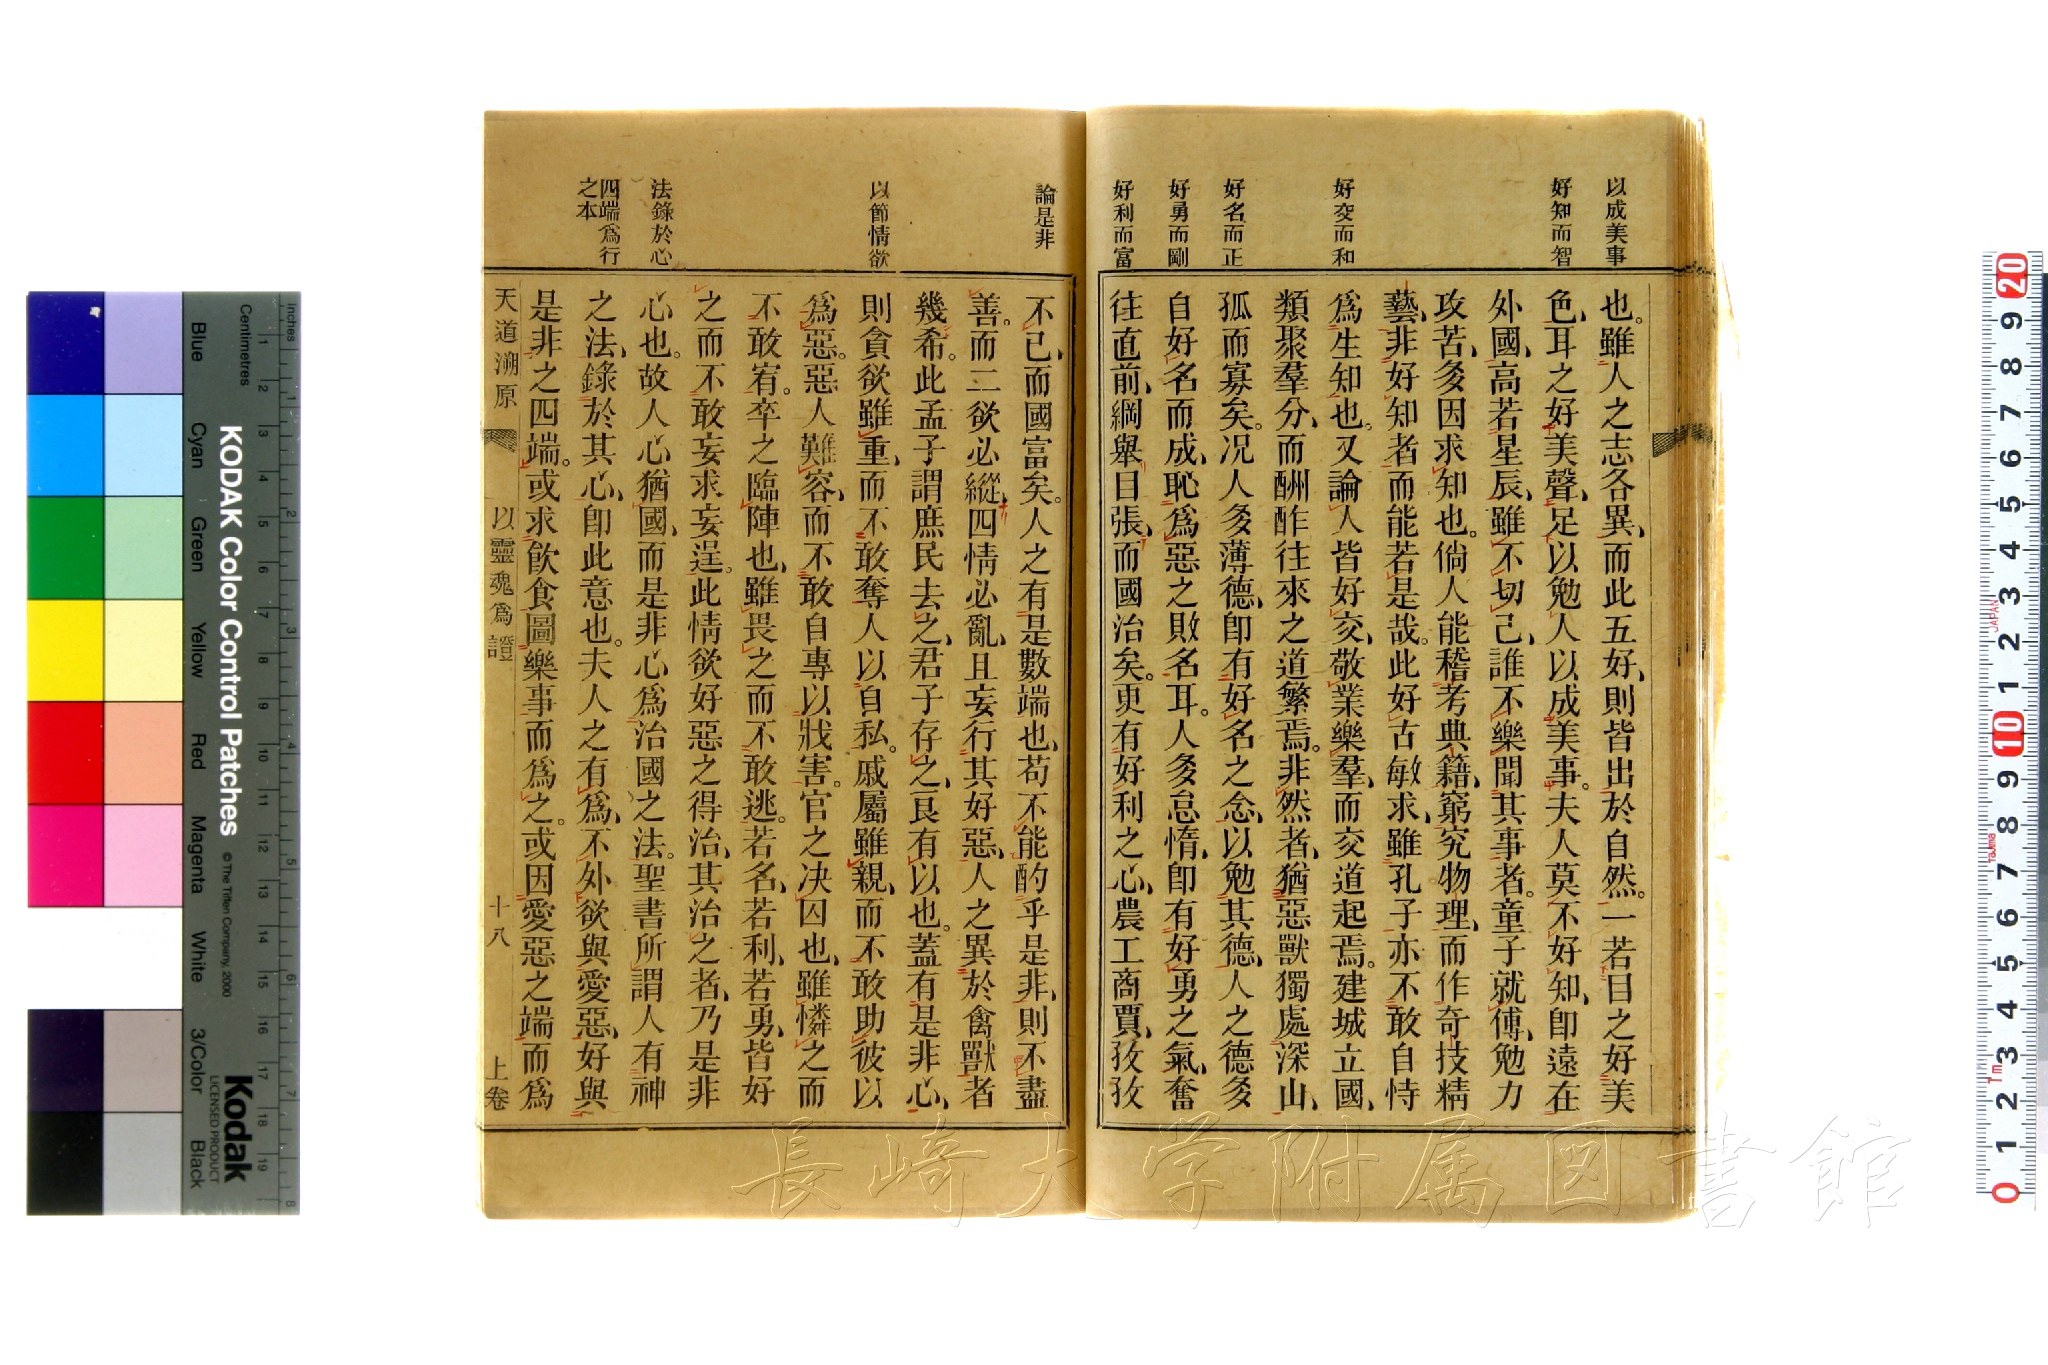 以成美事
好知而智
好交而和
好名而正
好勇而剛
好利而富
也。雖人之志各異、而此五好、則皆出於自然。一若目之好美
色、耳之好美聲、足以勉人以成美事。夫人莫不好知、卽遠在
外國、高若星辰、雖不切己、誰不樂聞其事者。童子就傅、勉力
攻苦、多因求知也。倘人能稽考典籍、窮究物理、而作奇技精
藝、非好知者而能若是哉。此好古敏求、雖孔子亦不敢自恃
爲生知也。又論人皆好交、敬業樂羣、而交道起焉。建城立國、
類聚羣分、而酬酢往來之道繁焉。非然者、猶惡獸獨處深山、
孤而寡矣。况人多薄德、卽有好名之念、以勉其德、人之德多
自好名而成、恥爲惡之敗名耳。人多怠惰、卽有好勇之氣、奮
往直前、綱舉目張、而國治矣。更有好利之心、農工商賈、孜孜
論是非
以節情欲
法錄於心
四端爲行
之本
不已、而國富矣。人之有是數端也、苟不能酌乎是非、則不盡
善。而二欲必縱、四情必亂、且妄行其好惡、人之異於禽獸者
幾希。此孟子謂庶民去之、君子存之、良有以也。蓋有是非心、
則貪欲雖重、而不敢奪人以自私。戚屬雖親、而不敢助彼以
爲惡。惡人難容、而不敢自專以戕害。官之决囚也、雖憐之而
不敢宥。卒之臨陣也、雖畏之而不敢逃。若名、若利、若勇、皆好
之而不敢妄求妄逞。此情欲好惡之得治、其治之者、乃是非
心也。故人心猶國、而是非心爲治國之法。聖書所謂人有神
之法、錄於其心、卽此意也。夫人之有爲、不外欲與愛惡、好與
是非之四端。或求飮食圖樂事而爲之。或因愛惡之端而爲
天道溯原
以靈魂爲證
十八
上卷
KODAK Color Control Patches
© The Tiffen Company, 2000
Kodak
LICENSED PRODUCT
Inches
Centimetres
Blue
Cyan
Green
Yellow
Red
Magenta
White
3/Color
Black
長崎大学附属図書館